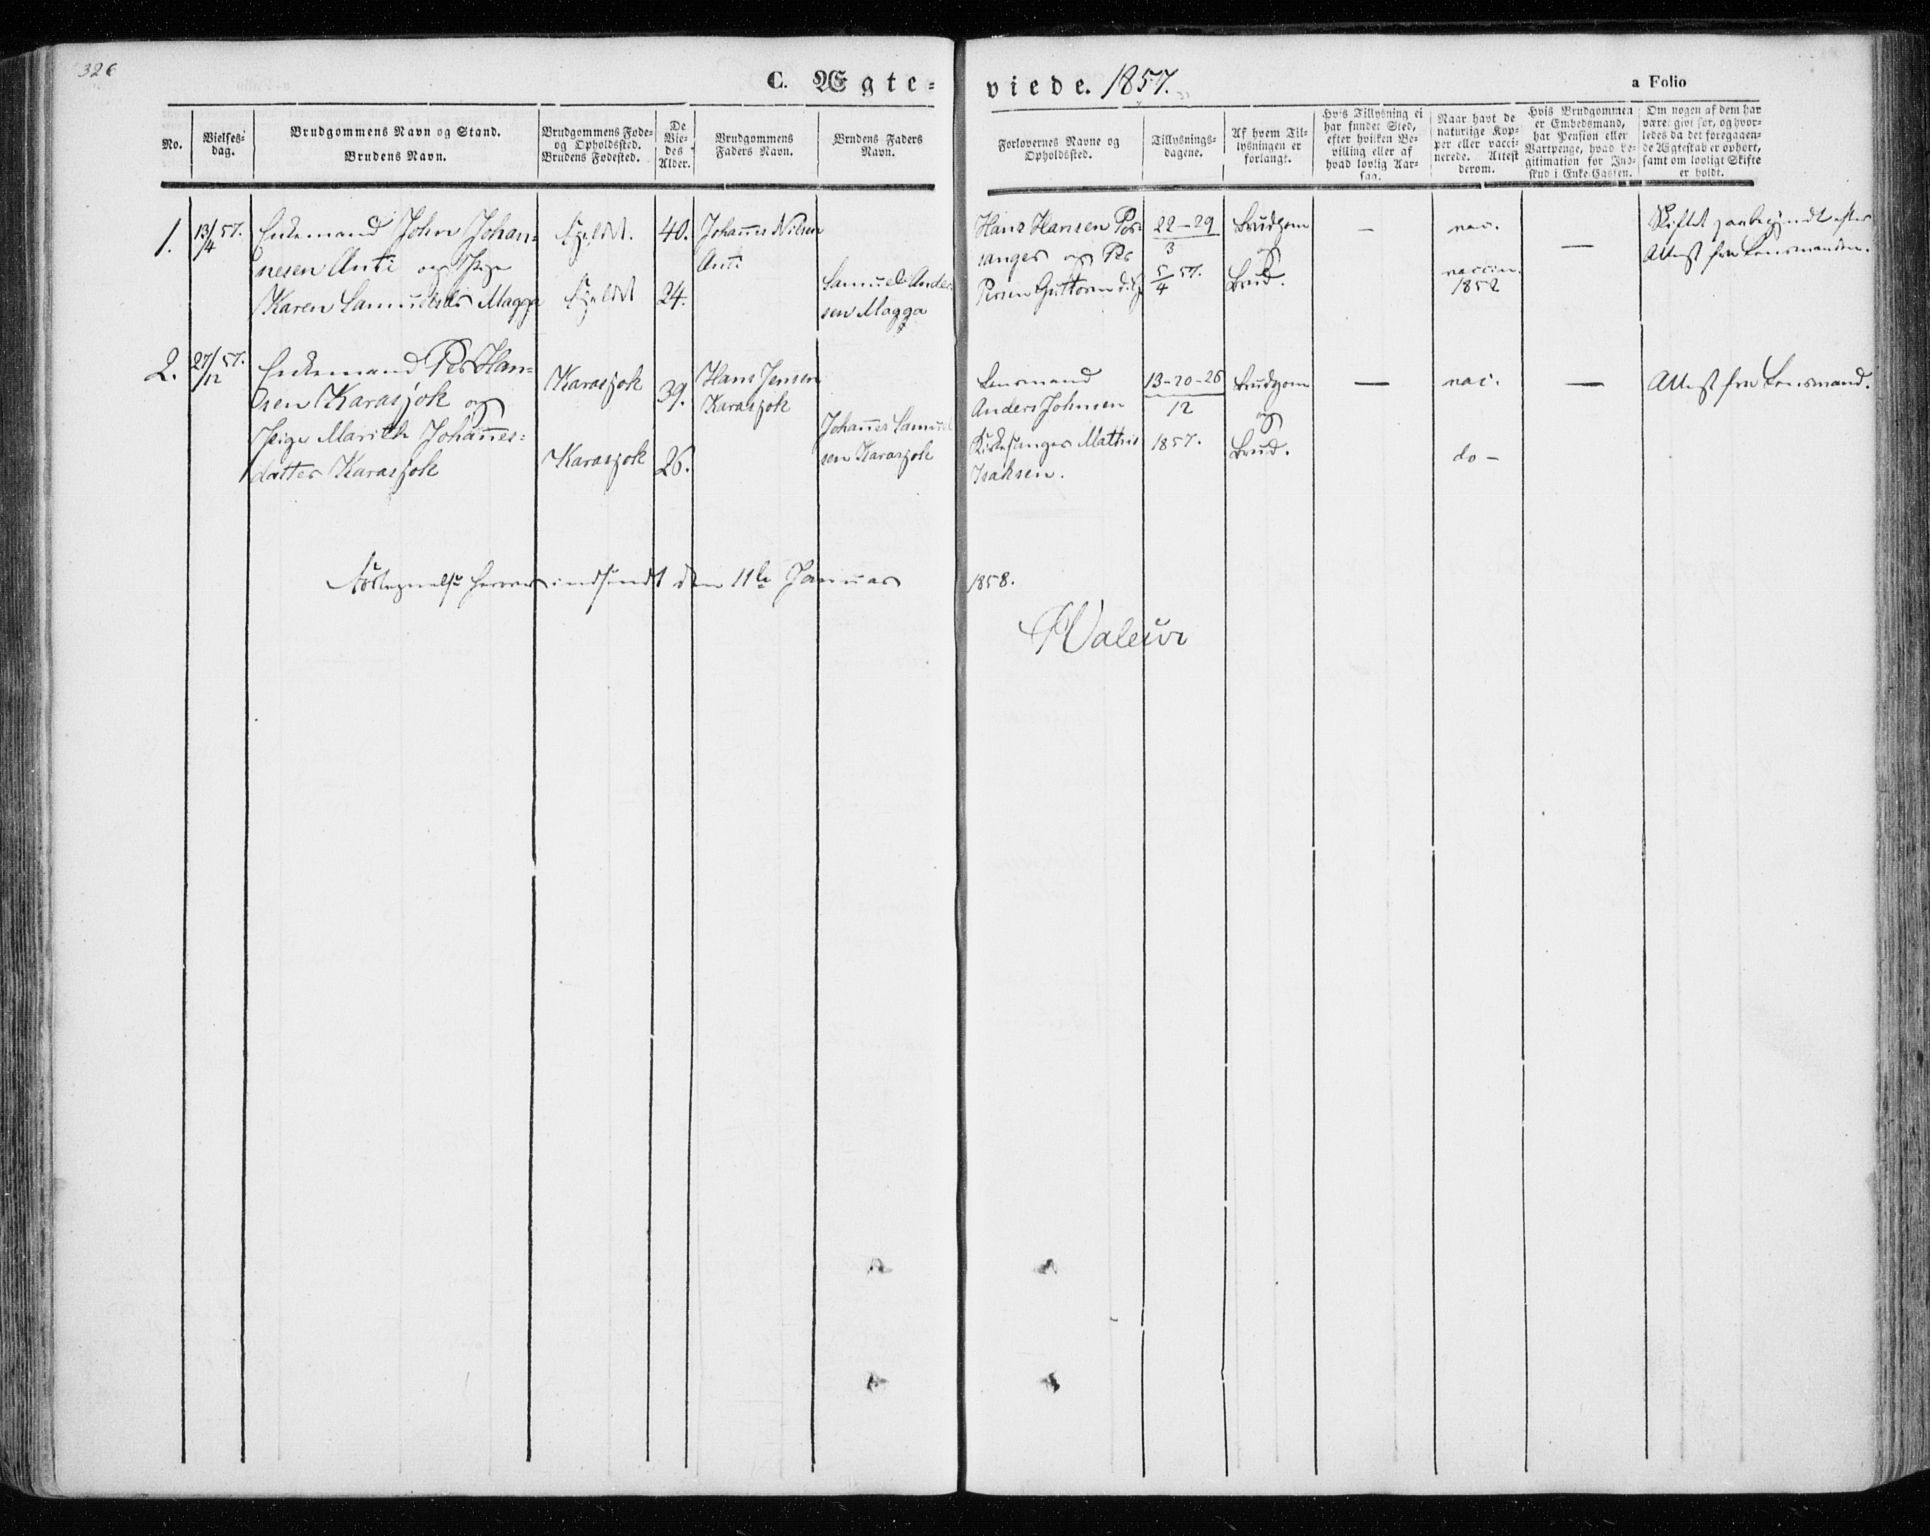 326
C. Ægte-
viede. 1857.
a Folio
No.
Vielses-
dag.
Brudgommens Navn og Stand.
Brudens Navn.
Brudgommens Føde-
og Opholdssted.
Brudens Fødested.
De
Vie-
des
Alder.
Brudgommens
Faders Navn.
Brudens Faders
Navn.
Forlovernes Navne og
Opholdssted.
Tillysnings-
dagene.
Af hvem Til-
lysningen er
forlangt.
Hvis Tillysning ei
har fundet Sted,
efter hvilken Be-
villing eller af
hvad lovlig Aar-
sag.
Naar havt de
naturlige Kop-
per eller vacci-
nerede. Attest
derom.
Hvis Brudgommen
er Embedsmand,
har Pension eller
Vartpenge, hvad Le-
gitimation for Ind-
skud i Enke-Cassen.
Om nogen af dem har
været gift før, og hvor-
ledes da det foregaaen-
de Ægteskab er ophørt,
samt om lovligt Skifte
er holdt.
1.
13/4 57.
Enkemand John Johan-
nesen Anti og Pige
Karen Samuelsdr Magga
Fjeldet.
Fjeldet
40.
24.
Johannes Nilsen
Anti
Samuel Ander
sen Magga
Hans Hansen Por-
sanger og Per
Persen Guttorm
22-29
3
5/4 57.
Brudgom
og
Brud.
–
vac.
vaccin.
1852
–
Skiftet paabegyndt efter
Attest fra Lensmanden.
2.
27/12 57.
Enkemand Per Han-
sen Karasjok og
Pige Marith Johannes-
datter Karasjok
Karasjok
Karasjok
39.
26.
Hans Jensen
Karasjok
Johannes Samuel
sen Karasjok
Lensmand
Anders Johnsen
Kirkesanger Mathis
Isaksen.
13-20-26
12
1857.
Brudgom
og
Brud.
–
vac.
do –
–
Attest fra Lensmand.
Fortegnelse herover indsendt den 11te Januar 1858.
Waleur